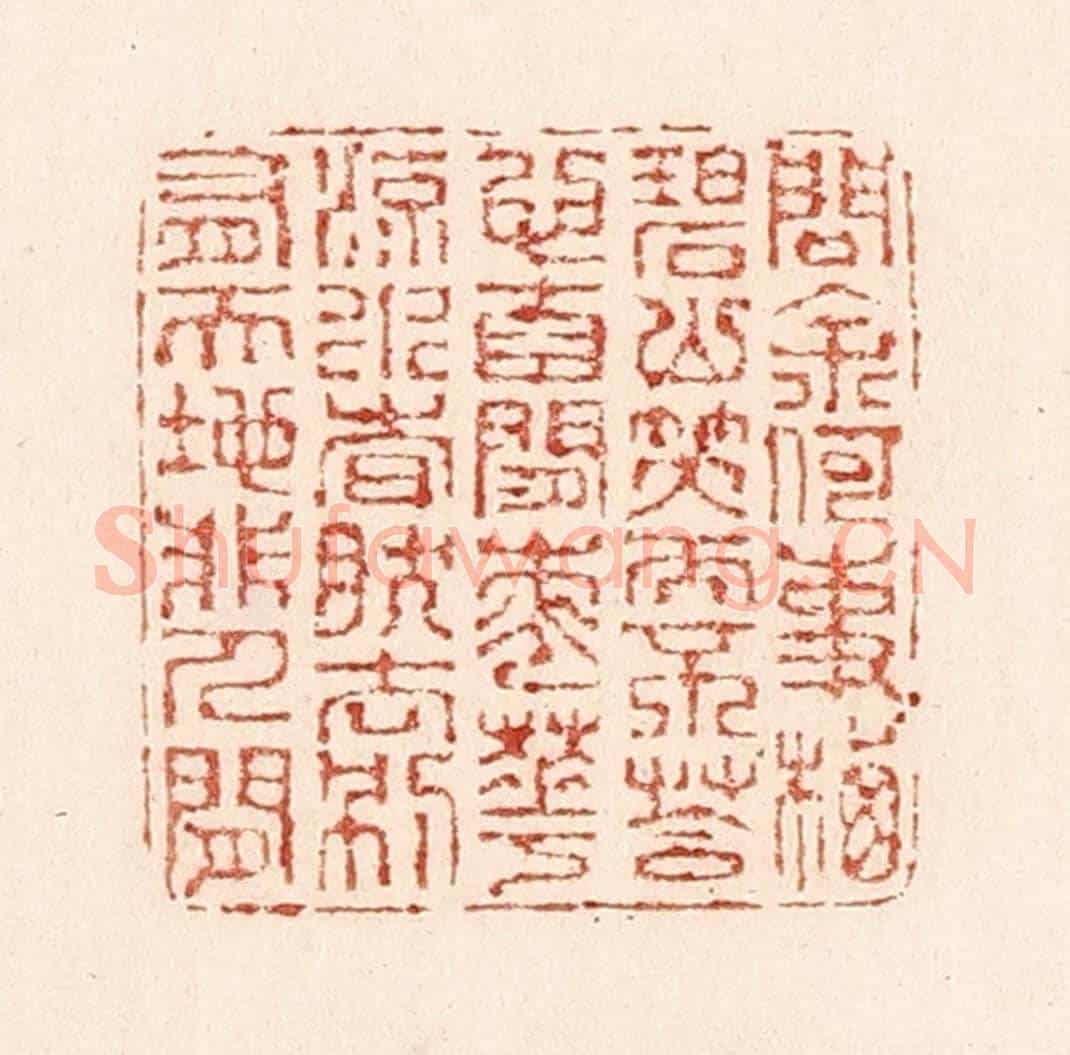 問余何事栖
碧山笑而不荅
心自閒桃華
流水窅然去別
有天地非人閒
Shufawang.CN